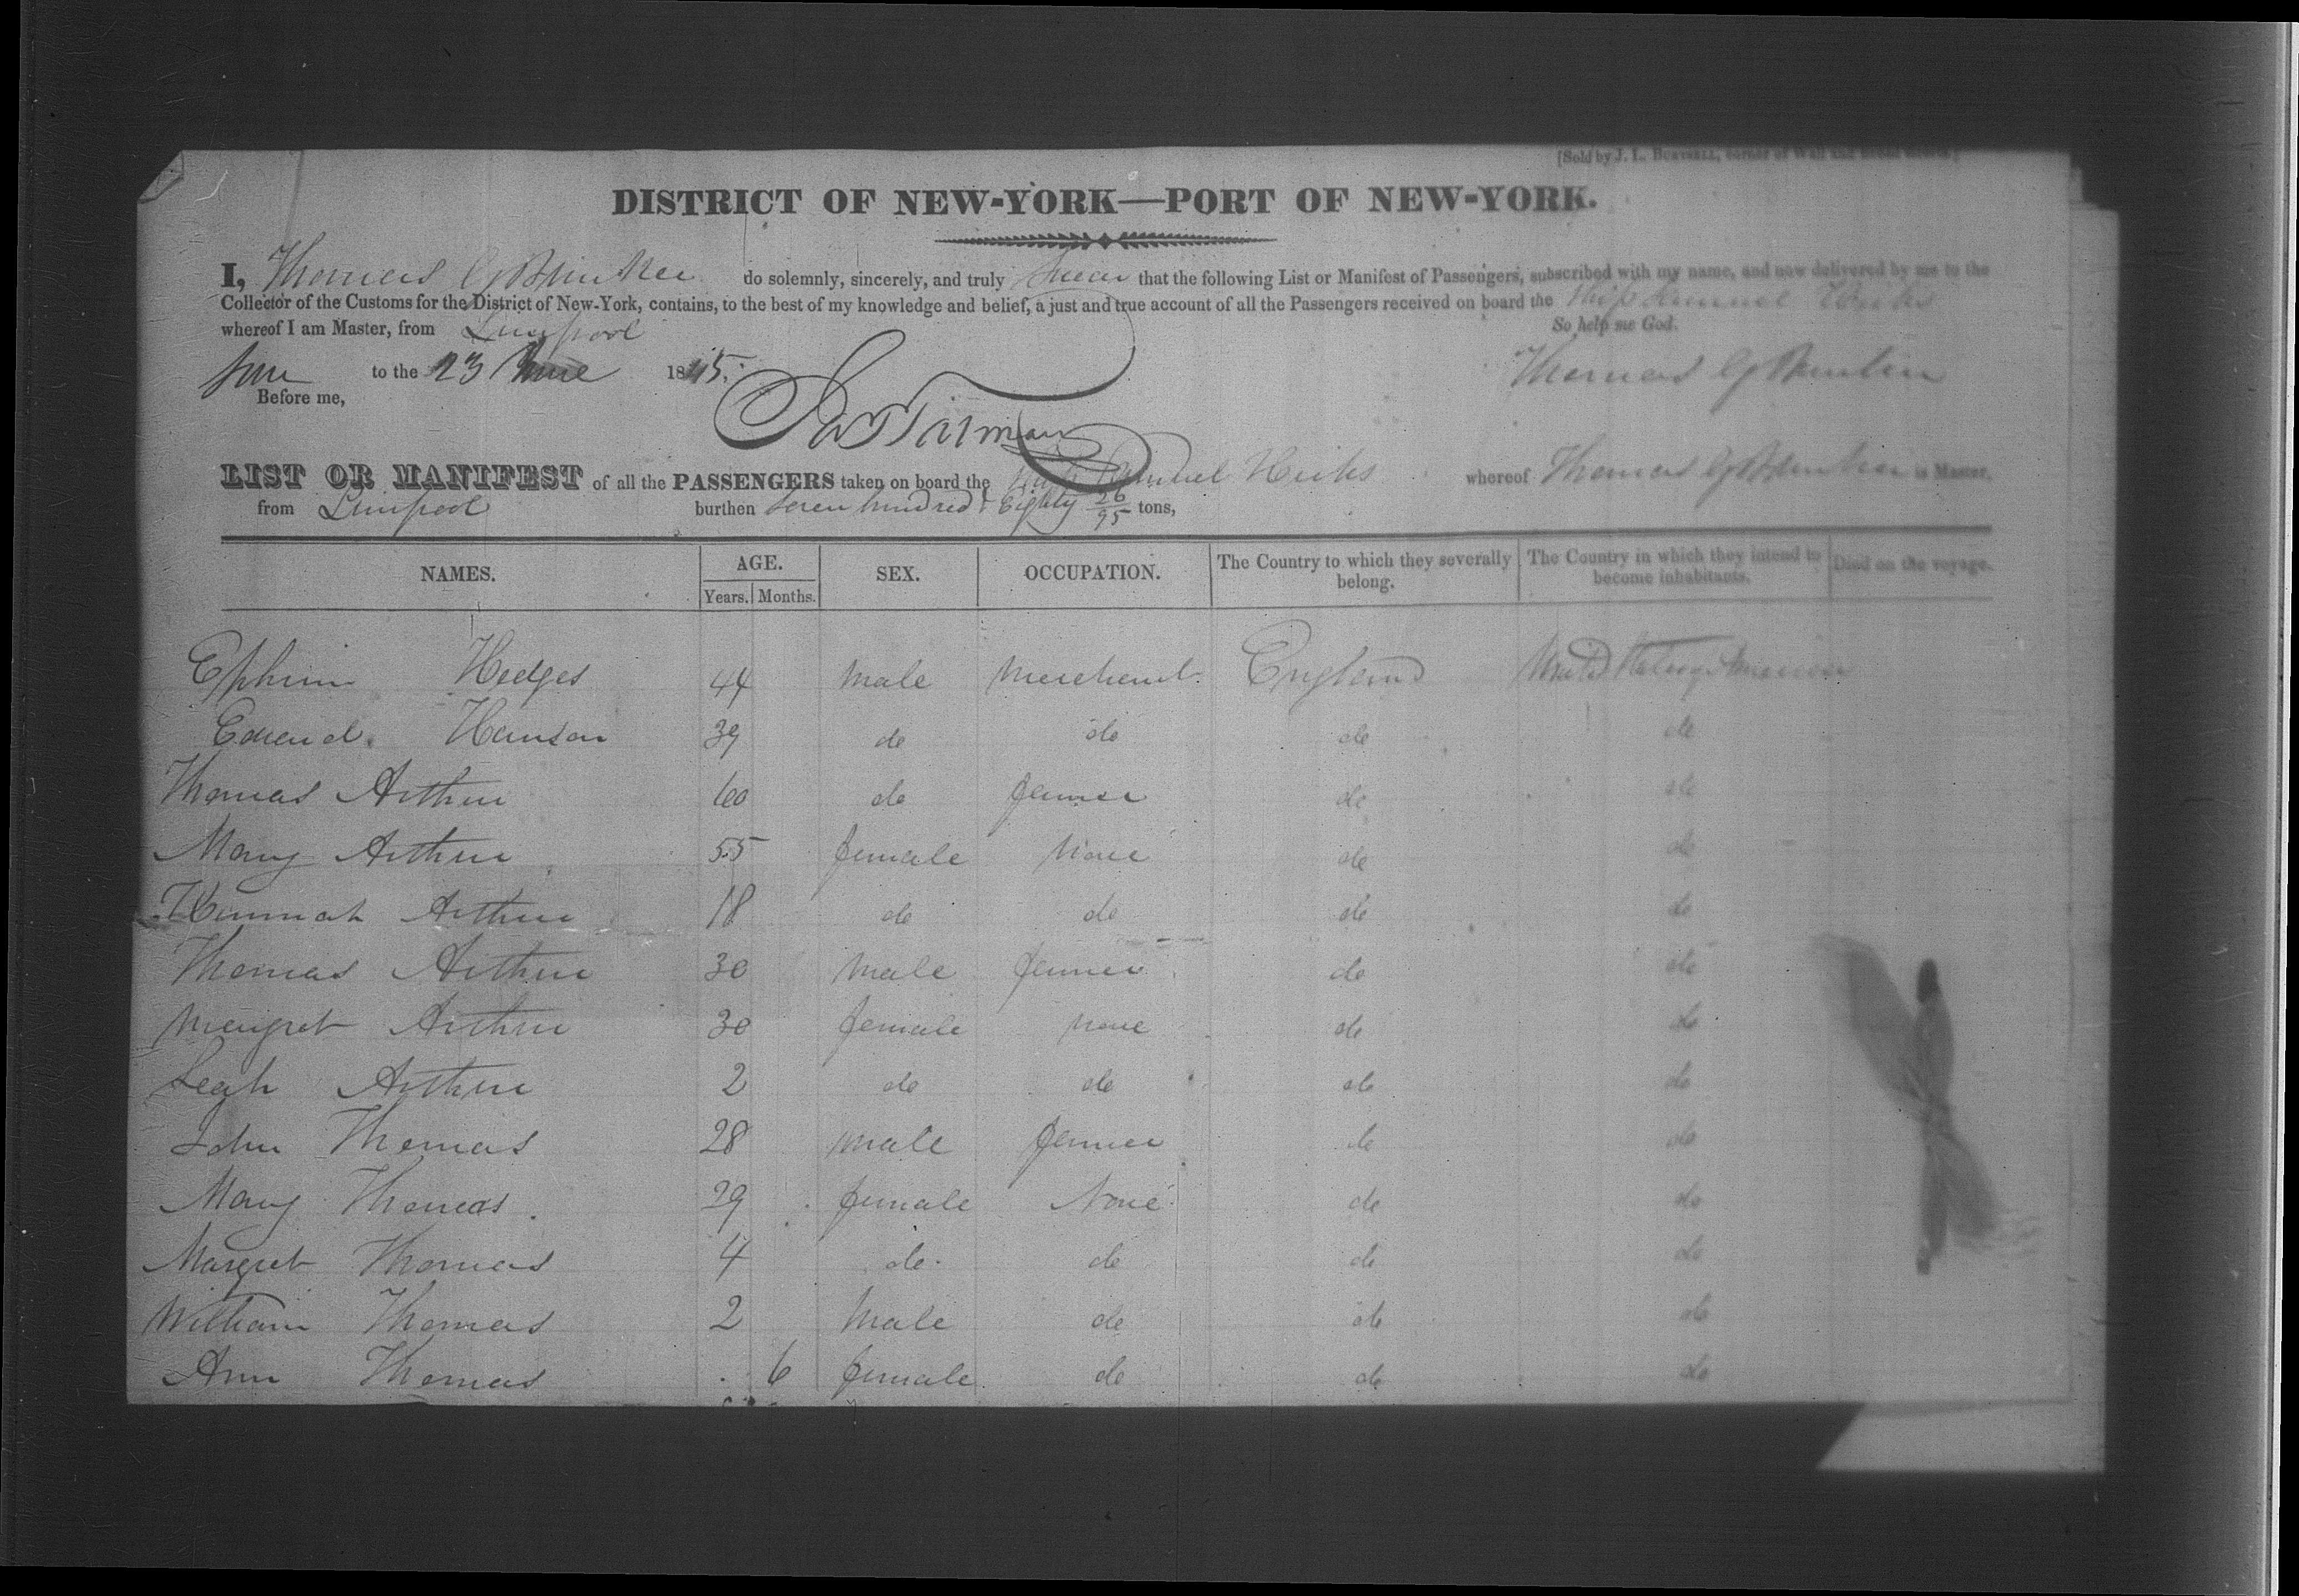 [Sold by J. L. BURTSELL, corner of Wall and Broad streets.]
DISTRICT OF NEW-YORK—PORT OF NEW-YORK.
I, Thomas G Bunker do solemnly, sincerely, and truly swear that the following List or Manifest of Passengers, subscribed with my name, and now delivered by me to the
Collector of the Customs for the District of New-York, contains, to the best of my knowledge and belief, a just and true account of all the Passengers received on board the Ship Samuel Hicks
whereof I am Master, from Liverpool
So help me God.
to the 23 June 1845.
Thomas G Bunker
Before me,
LIST OR MANIFEST of all the PASSENGERS taken on board the Ship Samuel Hicks whereof Thomas G Bunker is Master,
from Liverpool burthen seven hundred & Eighty 26/95 tons,
NAMES. AGE. SEX. OCCUPATION. The Country to which they severally belong. The Country in which they intend to become inhabitants. Died on the voyage.
Years. Months.
Ephrim Hedges 44 Male Merchant England United States of America
Edward Hanson 39 do do do do
Thomas Arthur 60 do farmer do do
Mary Arthur 55 female None do do
Hannah Arthur 18 do do do do
Thomas Arthur 30 Male farmer do do
Margret Arthur 30 female None do do
Leah Arthur 2 do do do do
John Thomas 28 Male farmer do do
Mary Thomas 29 female None do do
Margret Thomas 4 do do do do
William Thomas 2 Male do do do
Ann Thomas 6 female do do do